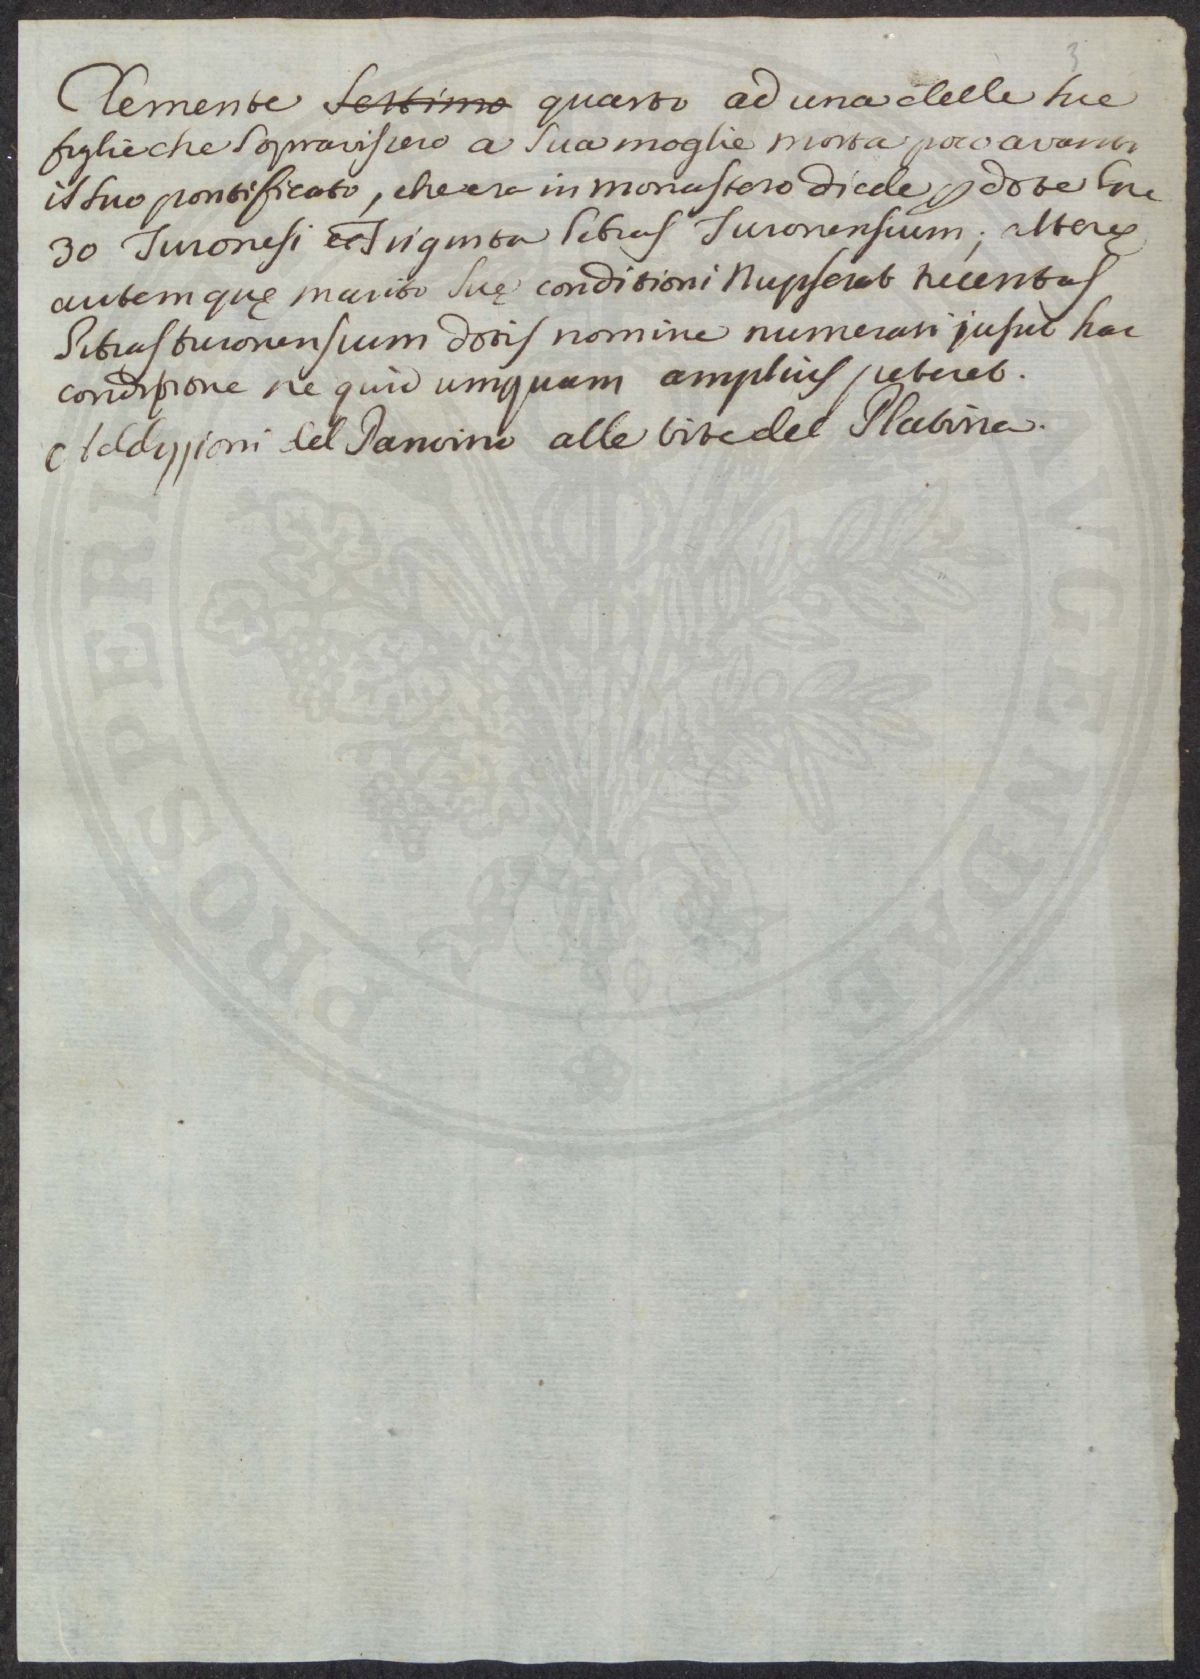 3
Clemente Settimo quarto ad una delle sue
figlie che sopravisero a sua moglie morta poco avanti
il suo pontificato, che era in monastero diede p dote lire
30 Turonesi et Triginta libras Turonensium; alterę
autem quę marito suę conditioni Nupserat trecentas
libras turonensium dotis nomine numerari jusit hac
condizione ne quid umquam amplius peteret.
Addizzioni del Panvino alle vite del Platina.
PROSPERI
AVGENDAE